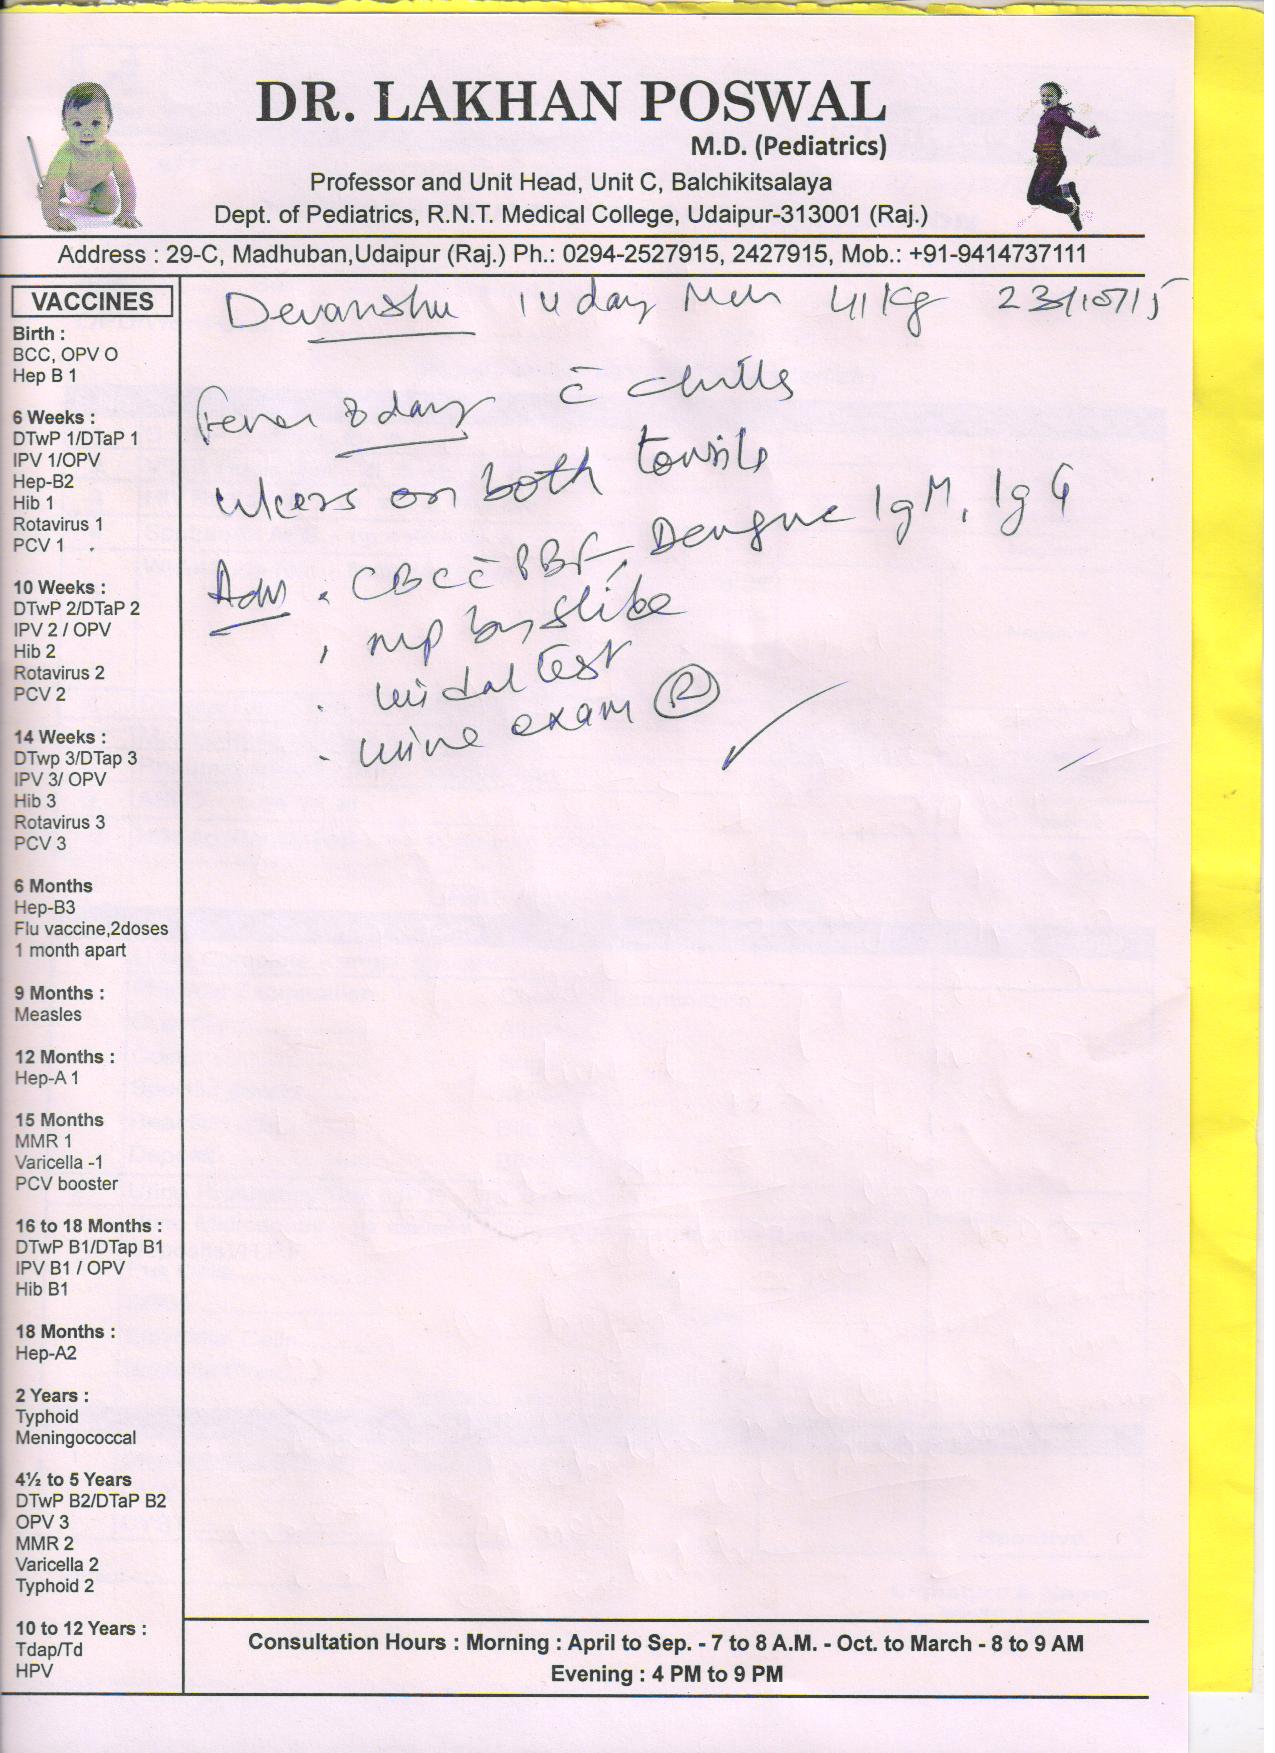 DR. LAKHAN POSWAL
M.D. (Pediatrics)
Professor and Unit Head, Unit C, Balchikitsalaya
Dept. of Pediatrics, R.N.T. Medical College, Udaipur-313001 (Raj.)
Address : 29-C, Madhuban,Udaipur (Raj.) Ph.: 0294-2527915, 2427915, Mob.: +91-9414737111
VACCINES
Birth :
BCC, OPV O
Hep B 1
6 Weeks :
DTwP 1/DTaP 1
IPV 1/OPV
Hep-B2
Hib 1
Rotavirus 1
PCV 1
10 Weeks :
DTwP 2/DTaP 2
IPV 2 / OPV
Hib 2
Rotavirus 2
PCV 2
14 Weeks :
DTwp 3/DTap 3
IPV 3/ OPV
Hib 3
Rotavirus 3
PCV 3
6 Months
Hep-B3
Flu vaccine,2doses
1 month apart
9 Months :
Measles
12 Months :
Hep-A 1
15 Months
MMR 1
Varicella -1
PCV booster
16 to 18 Months :
DTwP B1/DTap B1
IPV B1 / OPV
Hib B1
18 Months :
Hep-A2
2 Years :
Typhoid
Meningococcal
4½ to 5 Years
DTwP B2/DTaP B2
OPV 3
MMR 2
Varicella 2
Typhoid 2
10 to 12 Years :
Tdap/Td
HPV
Devanshu 14 day 41 Kg 23/10/15
Fever 8 days c̄ chills
ulcers on both tonsils
Adv . CBC c̄ PBF, Dengue IgM, IgG
, mp by slide
. widal test
. urine exam (R)
Consultation Hours : Morning : April to Sep. - 7 to 8 A.M. - Oct. to March - 8 to 9 AM
Evening : 4 PM to 9 PM